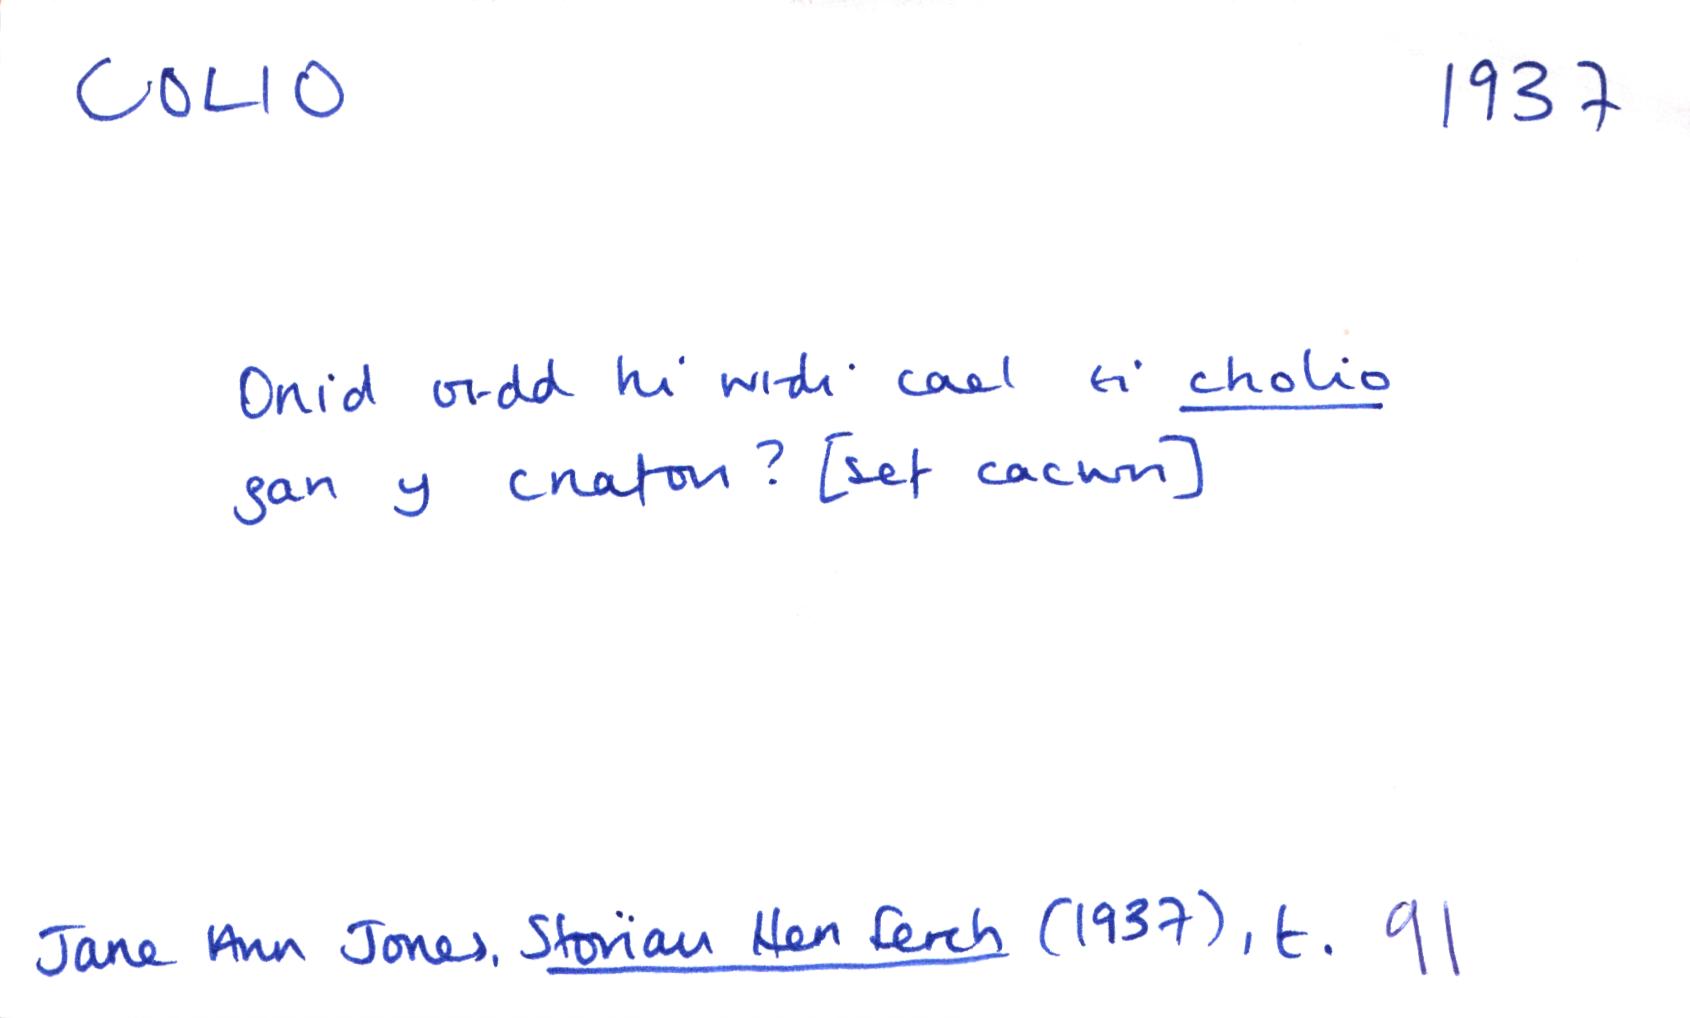 COLIO 1937
Onid oedd hi wedi cael ei cholio
gan y cnafon? [sef cacwn]
Jane Ann Jones, Storïau Hen Ferch (1937), t. 91